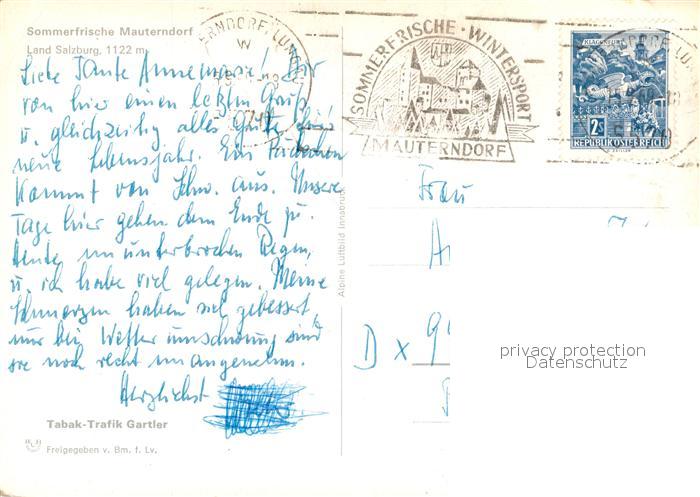 Sommerfrische Mauterndorf
Land Salzburg, 1122 m
Liebe Tante Annemarie! Dir
von hier einen letzten Gruß
u. gleichzeitig alles Gute für's
neue Lebensjahr. Ein Päckchen
kommt von Schw. aus. Unsere
Tage hier gehen dem Ende zu.
Heute ununterbrochen Regen,
u. ich habe viel gelegen. Meine
Schmerzen haben sich gebessert,
nur bei Wetterumschwung sind
sie noch recht unangenehm.
Herzlichst
Tabak-Trafik Gartler
Freigegeben v. Bm. f. Lv.
Alpine Luftbild Innsbruck
SOMMERFRISCHE · WINTERSPORT
MAUTERNDORF
KLAGENFURT
2 S
REPUBLIK ÖSTERREICH
Frau
D x
privacy protection
Datenschutz